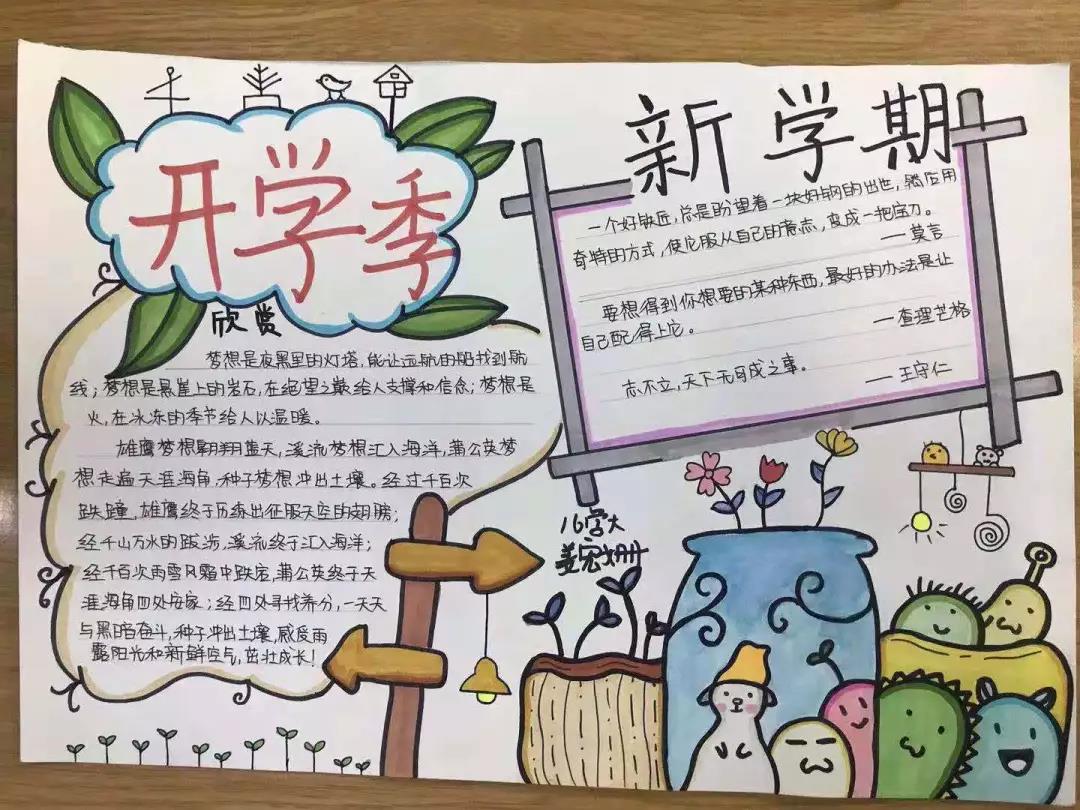 开学季
欣赏
梦想是夜黑里的灯塔,能让远航的船找到航
线;梦想是悬崖上的岩石,在绝望之巅给人支撑和信念;梦想是
火,在冰冻的季节给人以温暖。
雄鹰梦想翱翔蓝天,溪流梦想汇入海洋,蒲公英梦
想走遍天涯海角,种子梦想冲出土壤。经过千百次
跌撞,雄鹰终于历练出征服天空的翅膀;
经千山万水的跋涉,溪流终于汇入海洋;
经千百次雨雪风霜中跌宕,蒲公英终于天
涯海角四处安家;经四处寻找养分,一天天
与黑暗奋斗,种子冲出土壤,感受雨
露阳光和新鲜空气,茁壮成长!
新学期
一个好铁匠,总是盼望着一块好钢的出世,然后用
奇特的方式,使它服从自己的意志,变成一把宝刀。
——莫言
要想得到你想要的某种东西,最好的办法是让
自己配得上它。
——查理芒格
志不立,天下无可成之事。
——王守仁
18学大
姜宏姗